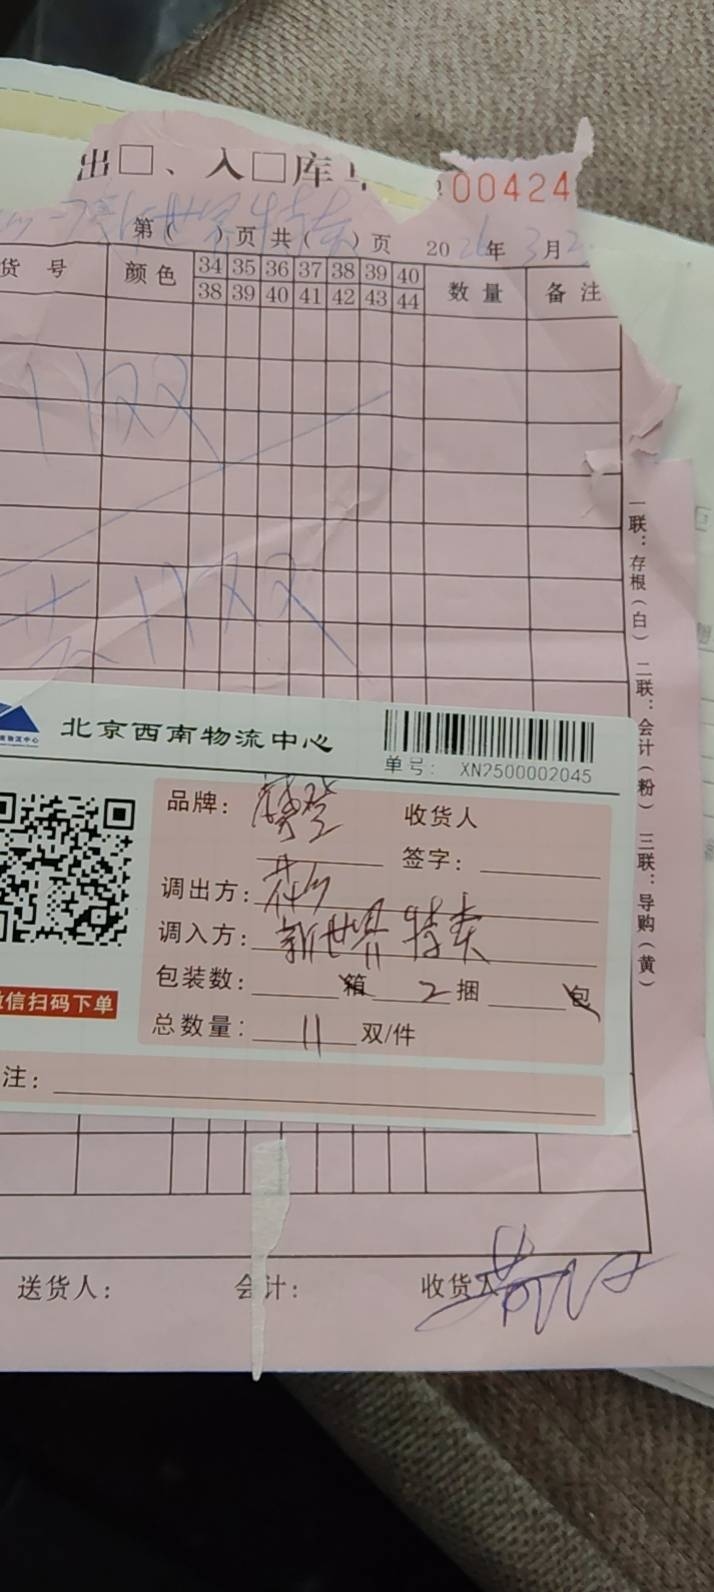 出□、入□库
00424
新世界特卖
第( )页 共( )页 2026年3月2
货 号 颜色 34 35 36 37 38 39 40 数量 备注
38 39 40 41 42 43 44
11双
共11双
一联:存根(白) 二联:会计(粉) 三联:导购(黄)
北京西南物流中心
单号: XN2500002045
品牌: 收货人
签字:
调出方:
调入方: 新世界特卖
包装数: 箱 2 捆 包
总数量: 11 双/件
微信扫码下单
注:
送货人: 会计: 收货人